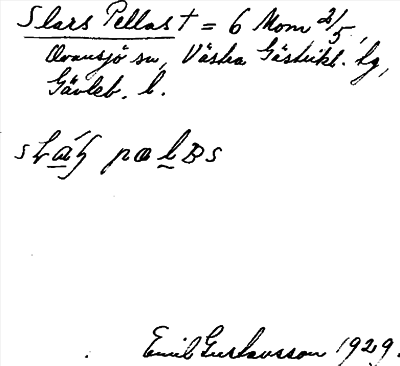 Slars Pellas † = 6 Mom 2/5,
Ovansjö sn, Västra Gästrikl. hg,
Gävleb. l.
Emil Gustavsson 1929.